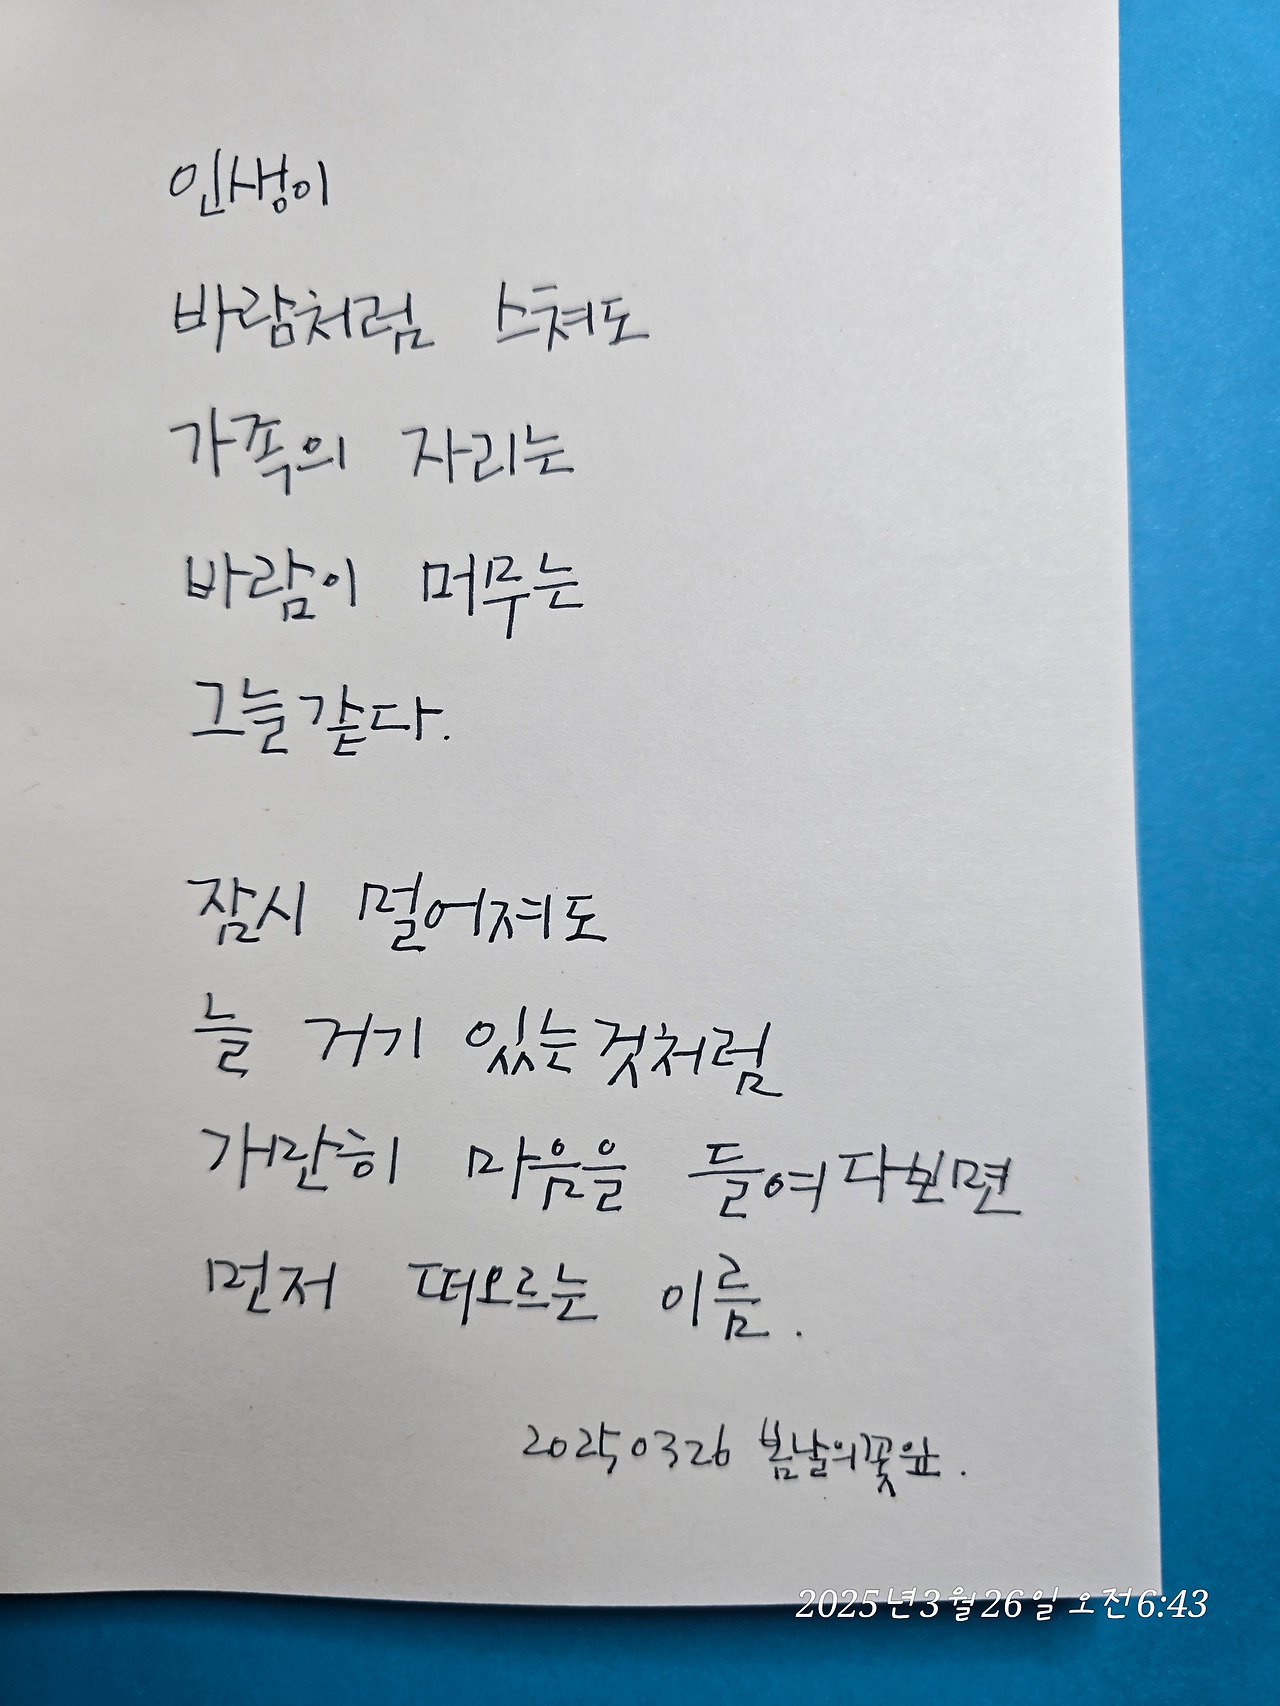 인생이
바람처럼 스쳐도
가족의 자리는
바람이 머무는
그늘같다.
잠시 멀어져도
늘 거기 있는것처럼
가만히 마음을 들여다보면
먼저 떠오르는 이름.
20250326 봄날의꽃잎.
2025년 3월 26일 오전 6:43